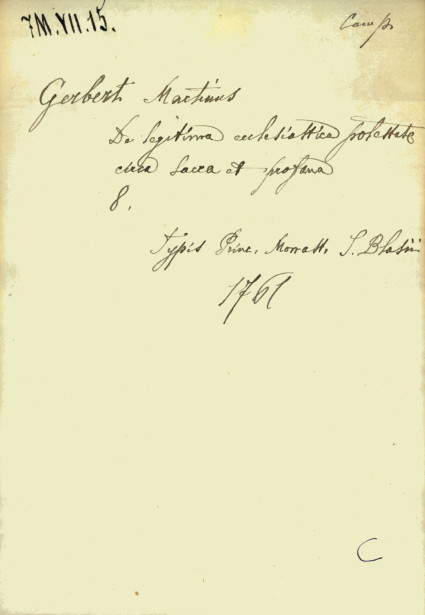 7M.VII.15.
Camp
Gerbert Martinus
De legitima ecclesiastica potestate
circa sacra et profana
8.
Typis Princ. Monast. S. Blasii
1761
C